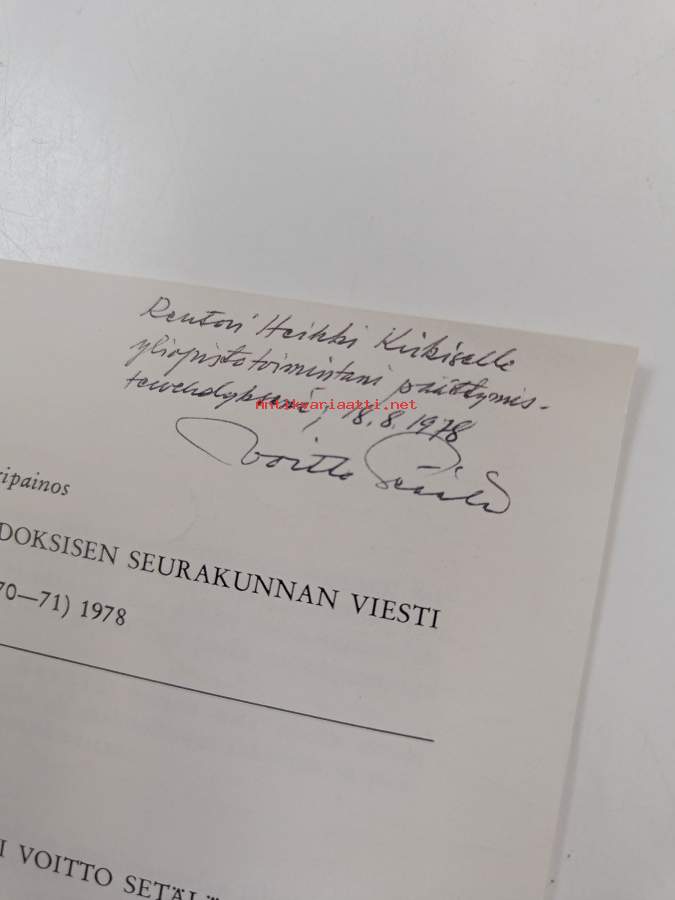 Rehtori Heikki Kirkiselle
yliopistotoimintani päättymis-
tervehdyksenä, 18.8.1978
antikvariaatti.net
Voitto Setälä
ripainos
DOKSISEN SEURAKUNNAN VIESTI
70—71) 1978
I VOITTO SETÄLÄ